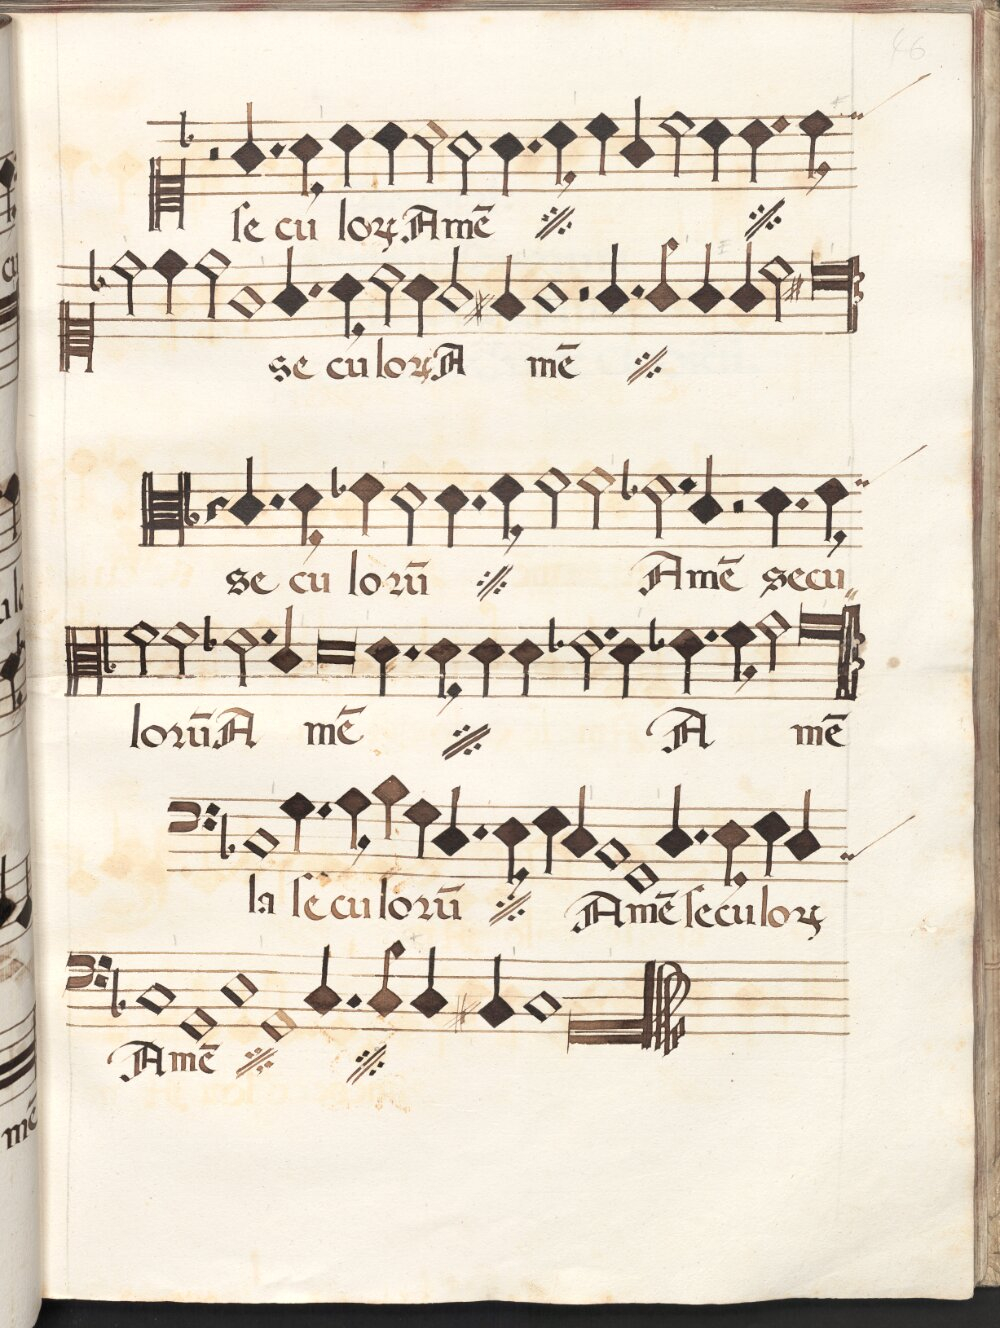 46
se cu loꝝ Amē
se cu loꝝ A mē
se cu lorū Amē secu
lorū A mē A mē
la seculorū Amē seculoꝝ
Amē